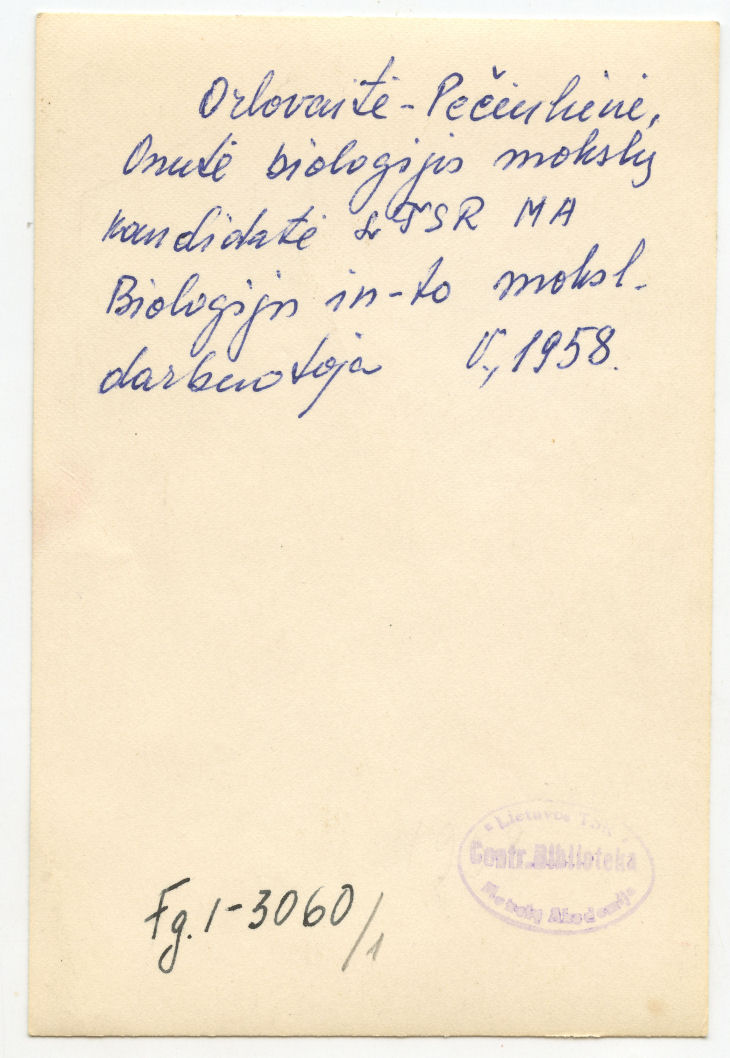 Orlovaitė-Pečiulienė,
Onutė biologijos mokslų
kandidatė LTSR MA
Biologijos in-to moksl.
darbuotoja V, 1958.
Lietuvos TSR
Centr. Biblioteka
Mokslų Akademija
Fg. 1-3060/1